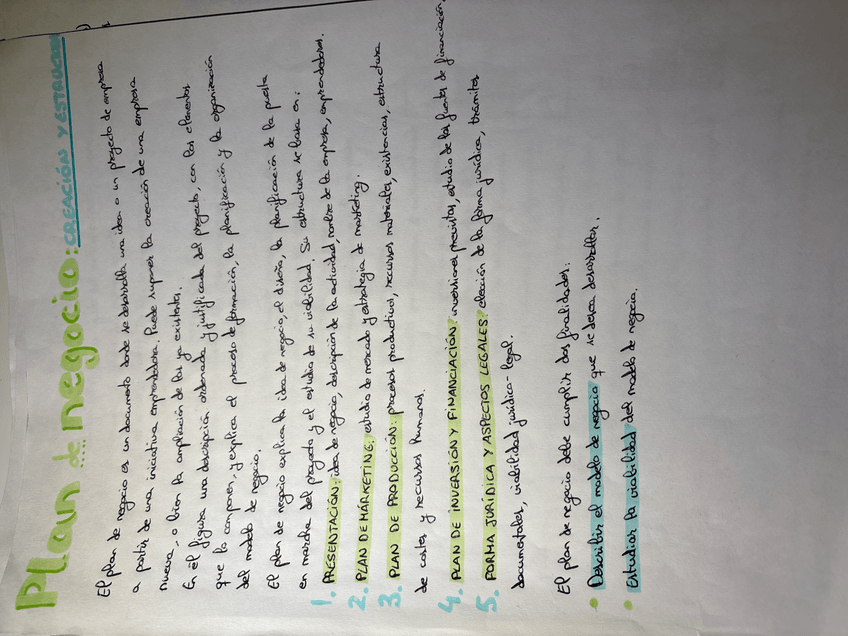 Plan de negocio: CREACIÓN Y ESTRUCTURA
El plan de negocio es un documento donde se desarrolla una idea o un proyecto de empresa
a partir de una iniciativa emprendedora. Puede suponer la creación de una empresa
nueva, o bien la ampliación de las ya existentes.
En él figura una descripción ordenada y justificada del proyecto, con los elementos
que lo componen, y explica el proceso de formación, la planificación y la organización
del modelo de negocio.
El plan de negocio explica la idea de negocio, el diseño, la planificación de la puesta
en marcha del proyecto y el estudio de su viabilidad. Su estructura se basa en:
1. PRESENTACIÓN: idea de negocio, descripción de la actividad, nombre de la empresa, emprendedores.
2. PLAN DE MÁRKETING: estudio de mercado y estrategia de marketing.
3. PLAN DE PRODUCCIÓN: procesos productivos, recursos materiales, existencias, estructura
de costes y recursos humanos.
4. PLAN DE INVERSIÓN Y FINANCIACIÓN: inversiones previstas, estudio de las fuentes de financiación
5. FORMA JURÍDICA Y ASPECTOS LEGALES: elección de la forma jurídica, trámites
documentales, viabilidad jurídico-legal.
El plan de negocio debe cumplir dos finalidades:
• Describir el modelo de negocio que se desea desarrollar.
• Estudiar la viabilidad del modelo de negocio.